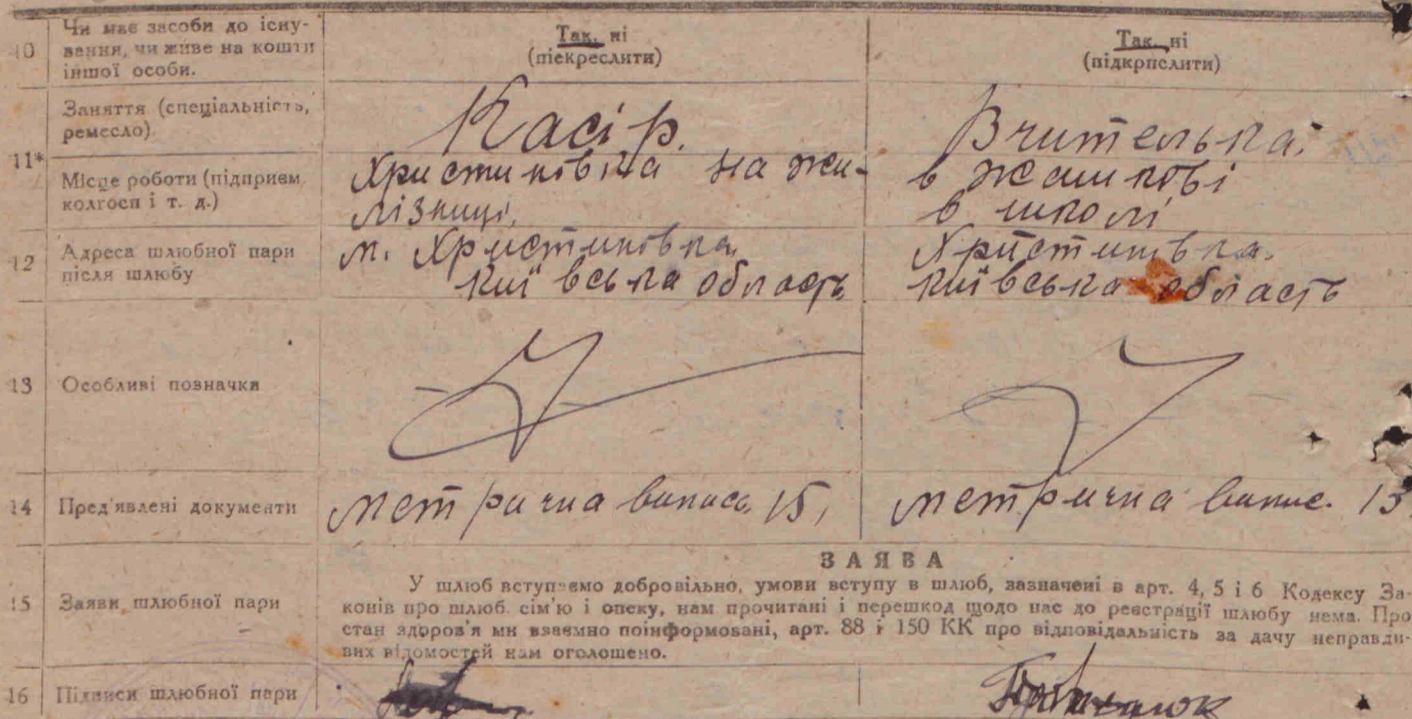 10 Чи має засоби до існу-
вання, чи живе на кошти
іншої особи.
Так, ні
(піекреслити)
Так, ні
(підкрпслити)
11*
Заняття (спеціальність,
ремесло)
Касір.
Вчителька.
Місце роботи (підприєм.
колгосп і т. д.)
Христиновка на жи-
лізниці.
в Жашкові
в школі
12 Адреса шлюбної пари
після шлюбу
м. Христиновка
київська область
Христиновка.
київська область
13 Особливі позначки
14 Пред'явлені документи
метрична випись 15,
метрична випис. 15
15 Заяви шлюбної пари
ЗАЯВА
У шлюб вступаємо добровільно, умови вступу в шлюб, зазначені в арт. 4, 5 і 6 Кодексу За-
конів про шлюб. сім'ю і опеку, нам прочитані і перешкод щодо нас до реєстрації шлюбу нема. Про
стан здоров'я ми взаємно поінформовані, арт. 88 і 150 КК про відповідальність за дачу неправди-
вих відомостей нам оголошено.
16 Підписи шлюбної пари